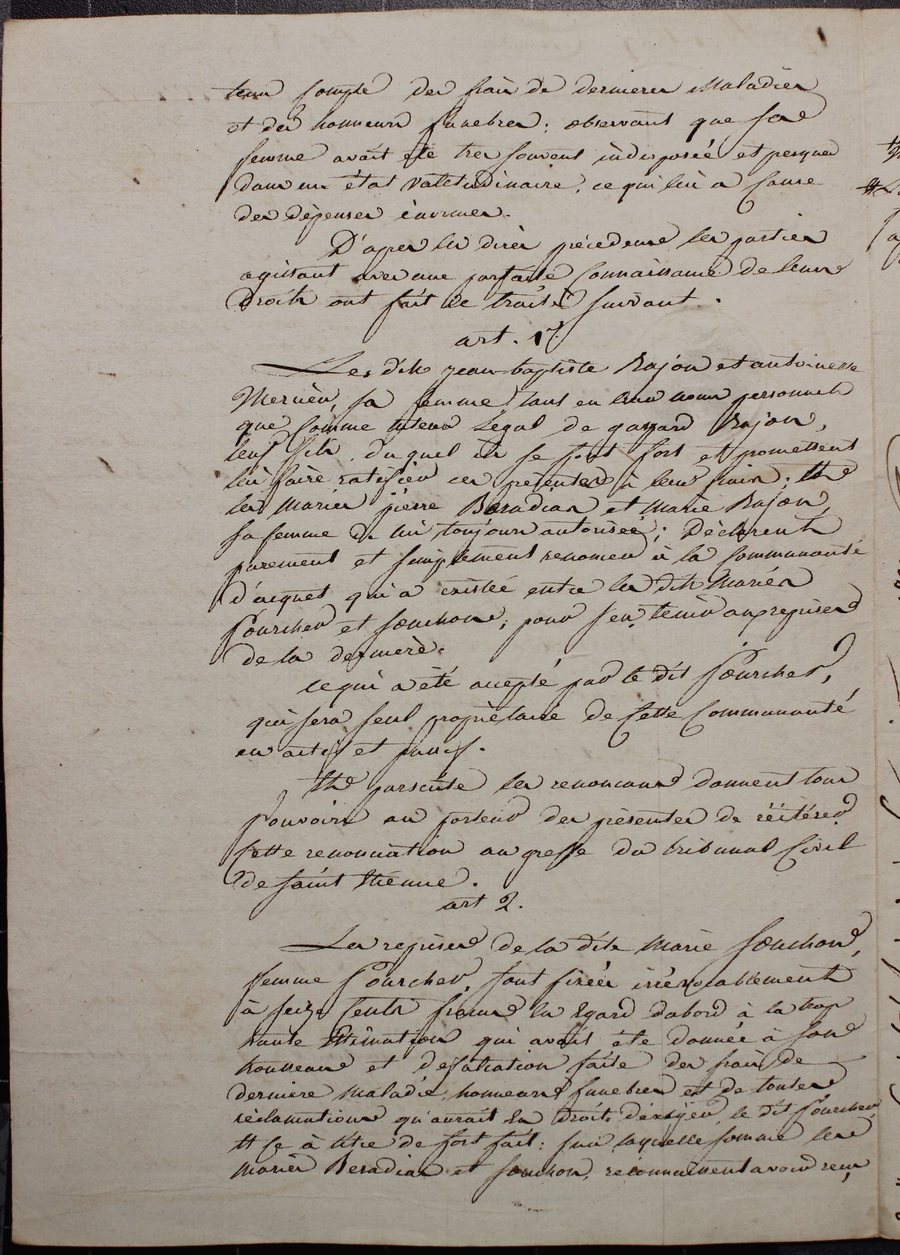 tenu Compte des frais de dernieres Maladies
et des honneurs funebres; observant que sa
femme avait été tres souvent indisposée et presque
dans un état Valetudinaire, ce qui lui a Causé
des dépenses énormes.
D'apres les dires précédents les parties
agissant avec une parfaite Connaissance de leurs
Droits ont fait le traité suivant.
art. 1er.
Les dits jean-baptiste Rajon et antoinette
Mernieu, sa femme tant en leur nom personnel
que Comme tuteur Légal de gaspard Rajon,
leur fils, du quel ils se font fort et promettent
lui faire ratifier ces présentes à leurs frais; Et
les Mariés pierre Beradian et Marie Rajon,
sa femme de lui toujours autorisée; Déclarent
purement et simplement renoncer à la Communauté
d'acquets qui a existée entre les dits Mariés
Fourcher et souchon, pour s'en tenir aux reprises
de la derniere.
Ce qui a été accepté par le dit Fourcher,
qui sera seul propriétaire de Cette Communauté
en actif et passif.
Et par suite les renonçants donnent tous
Pouvoirs au porteur des présentes de réitérer
Cette renonciation au greffe du tribunal Civil
de saint Etienne.
art 2.
Les reprises de la dite Marie souchon,
femme Fourcher, sont fixées irrévocablement
à seize Cents francs eu Egard d'abord à la trop
haute Estimation qui avait été donnée à son
trousseau et défalcation faite des frais de
derniere Maladie, honneurs funebres et de toutes
réclamations qu'aurait eu Droit d'exiger le dit Fourcher,
Et Ce à titre de fort fait: sur laquelle somme les
Mariés Beradian et souchon, reconnaissent avoir reçu,